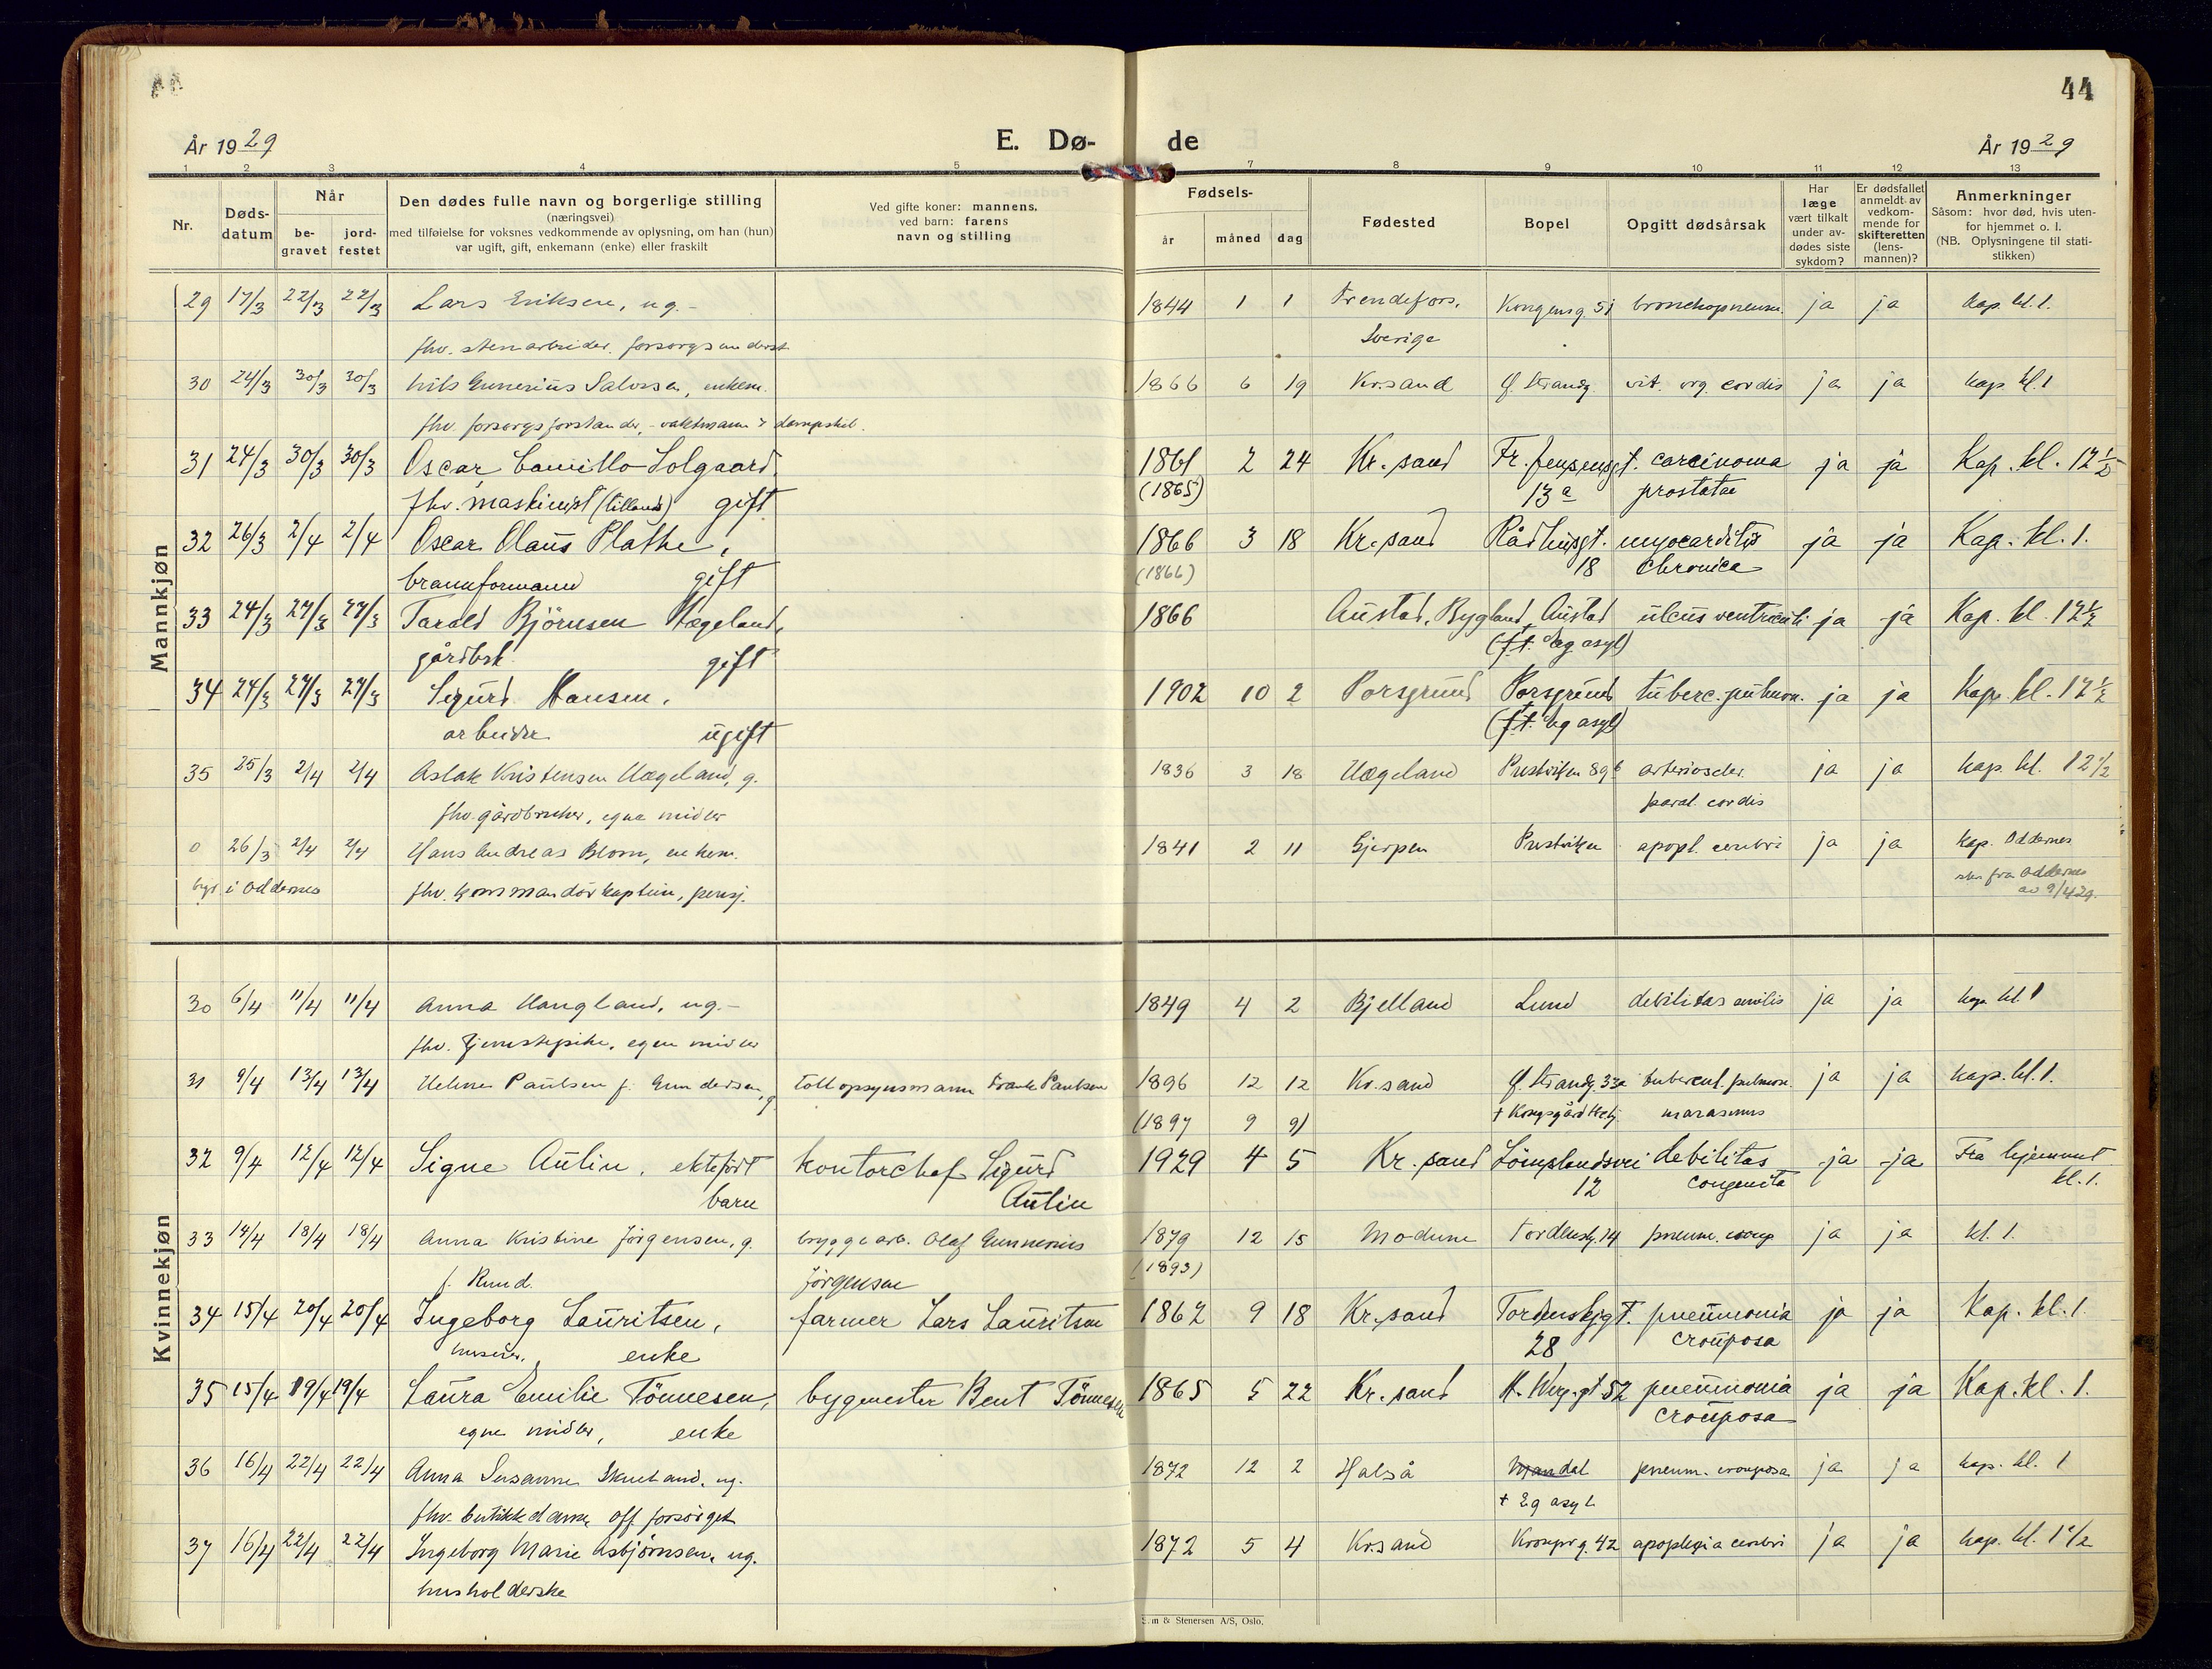 44
År 1929
E. Dø-
de
År 1929
1 2 3 4 5 7 8 9 10 11 12 13
Nr.
Døds-
datum
Når
be-
gravet
jord-
festet
Den dødes fulle navn og borgerlige stilling
(næringsvei)
med tilføielse for voksnes vedkommende av oplysning, om han (hun)
var ugift, gift, enkemann (enke) eller fraskilt
Ved gifte koner: mannens.
ved barn: farens
navn og stilling
Fødsels-
år måned dag
Fødested
Bopel
Opgitt dødsårsak
Har
læge
vært tilkalt
under av-
dødes siste
sykdom?
Er dødsfallet
anmeldt av
vedkom-
mende for
skifteretten
(lens-
mannen)?
Anmerkninger
Såsom: hvor død, hvis uten-
for hjemmet o. l.
(NB. Oplysningene til stati-
stikken)
Mannkjøn
29 17/3 22/3 22/3 Lars Eriksen, ug. 1844 1 1 Frendefors, Kongensg. 51 bronchopneum. ja ja Kap. kl. 1.
fhv. stenarbeider, forsorgsunderst. Sverige
30 24/3 30/3 30/3 Nils Gunerius Salvesen, enkem. 1866 6 19 Kr.sand Ø. Strandg. vit. org. cordis ja ja kap. kl. 1
fhv. forsorgsforstander, - vaktmann i dampskib.
31 24/3 30/3 30/3 Oscar Camillo Solgaard, 1861 2 24 Kr. sand Fr. Jensensgt. carcinoma ja ja Kap. kl. 12 1/2
fhv. maskinist (tillands) gift (1865) 13 a prostatae
32 26/3 2/4 2/4 Oscar Olaus Plathe, 1866 3 18 Kr. sand Rådhusgt. myocarditis ja ja Kap. kl. 1.
brannformann gift (1866) 18 chronica
33 24/3 27/3 27/3 Tarald Björnsen Hægeland, 1866 Austad, Bygland Austad ulcus ventriculi ja ja Kap. kl. 12 1/2
gårdbrk. gift (f.t. Eg asyl)
34 24/3 27/3 27/3 Sigurd Hansen, 1902 10 2 Porsgrund Porsgrund tuberc. pulmon. ja ja Kap. kl. 12 1/2
arbeider ugift (f.t. Eg asyl)
35 25/3 2/4 2/4 Aslak Kristensen Hægeland, g. 1836 3 18 Hægeland Prestviken 89b arterioscler. ja ja kap. kl. 12 1/2
fhv. gårdbruker, egne midler paral. cordis
0 26/3 2/4 2/4 Hans Andreas Blom, enkem. 1841 2 11 Gjerpen Prestviken apopl. cerebri ja ja kap. Oddernes
i Oddernes fhv. kommandörkaptein, pensj. fra Oddernes
av 9/4 29.
Kvinnekjøn
30 6/4 11/4 11/4 Anna Haugland, ug. 1849 4 2 Bjelland Lund debilitas senilis ja ja kap. kl. 1
fhv. tjenestepike, egne midler
31 9/4 13/4 13/4 Helene Paulsen f. Gundersen, g. tollopsynsmann Frank Paulsen 1896 12 12 Kr.sand Ø. Strandg. 33a tubercul. pulmon. ja ja kap. kl. 1.
(1897 9 9) + Kongsgård marasmus
32 9/4 12/4 12/4 Signe Aulin, ektefödt kontorchef Sigurd 1929 4 5 Kr. sand Lömslandsvei debilitas ja ja Fra hjemmet
barn Aulin 12 congenita kl. 1.
33 14/4 18/4 18/4 Anna Kristine Jörgensen, g. bryggearb. Olaf Gunnerius 1879 12 15 Modum Tordenskj. 14 pneum. croup ja ja kl. 1.
f. Ruud. Jörgensen (1893)
34 15/4 20/4 20/4 Ingeborg Lauritsen, farmer Lars Lauritsen 1862 9 18 Kr. sand Tordenskjgt. pneumonia ja ja Kap. kl. 1.
enke 28 crouposa
35 15/4 19/4 19/4 Laura Emilie Tönnesen, bygmester Bent Tönnesen 1865 5 22 Kr. sand H. Werg.gt 52 pneumonia ja ja Kap. kl. 1.
egne midler, enke crouposa
36 16/4 22/4 22/4 Anna Susanne ug. 1872 12 2 Halså Mandal pneum. crouposa ja ja kap. kl. 1
fhv. butikkdame, off. forsörget + Eg asyl
37 16/4 22/4 22/4 Ingeborg Marie Asbjörnsen, ug. 1872 5 4 Kr.sand Kronprg. 42 apoplexia cerebri ja ja kap. kl. 1 1/2
husholderske
& Stenersen A/S, Oslo.